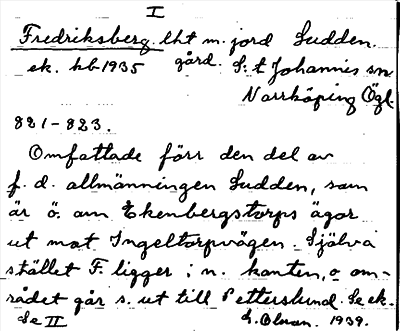 I
Fredriksberg lht m. jord Sudden.
ek. kb 1935 gård. S:t Johannis sn
Norrköping Ögl.
821-823.
Omfattade förr den del av
f. d. allmänningen Sudden, som
är ö. om Ekenbergstorps ägor
ut mot Ingeltorpvägen. Själva
stället F. ligger i n. kanten, o om-
rådet går s. ut till Petterslund. Se ek.
Se II
G. Olsson 1939.